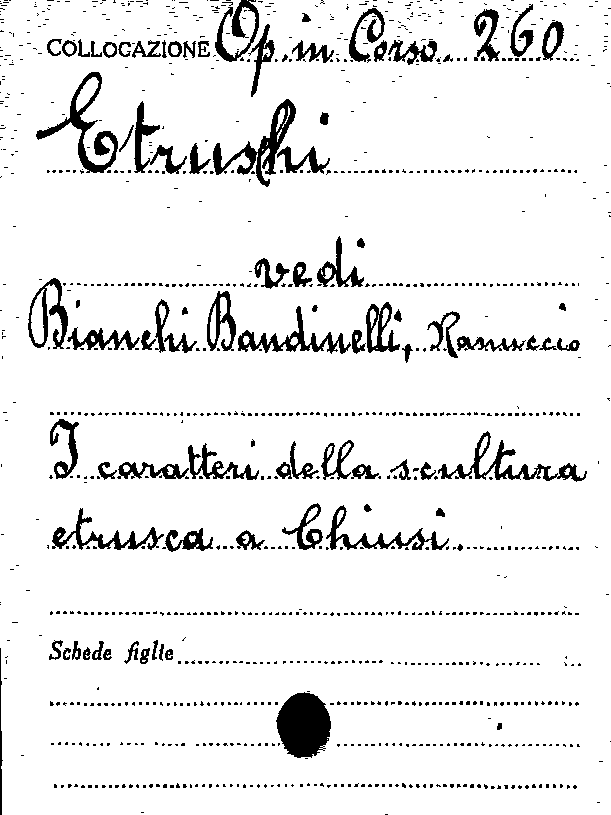 COLLOCAZIONE Op. in Corso. 260
Etruschi
vedi
Bianchi Bandinelli, Ranuccio
I caratteri della scultura
etrusca a Chiusi.
Schede figlie